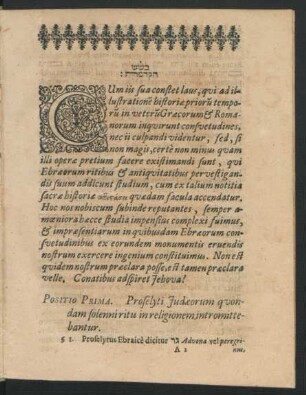 CUm iis sua constet laus, qvi ad il-
lustrationē historiæ priorū tempo-
rū in veterū Græcorum & Roma-
norum inqvirunt consvetudines,
nec ii culpandi videntur, sed, si
non magis, certè non minus qvam
illi operæ pretium facere existimandi sunt, qvi
Ebræorum ritibus & antiqvitatibus pervestigan-
dis suum addicunt studium, cum ex talium notitia
sacræ historiæ qvædam facula accendatur.
Hoc nos nobiscum subinde reputantes, semper a-
mœniora hæcce studia impensius complexi fuimus,
& impræsentiarum in qvibusdam Ebræorum con-
svetudinibus ex eorundem monumentis eruendis
nostrum exercere ingenium constituimus. Non est
qvidem nostrum præclara posse, est tamen præclara
velle, Conatibus adspiret Jehova!
POSITIO PRIMA. Proselyti Judæorum qvon-
dam solenni ritu in religionem intromitte-
bantur.
§ 1. Proselytus Ebraicè dicitur גר Advena vel peregri-
A 2 nus.